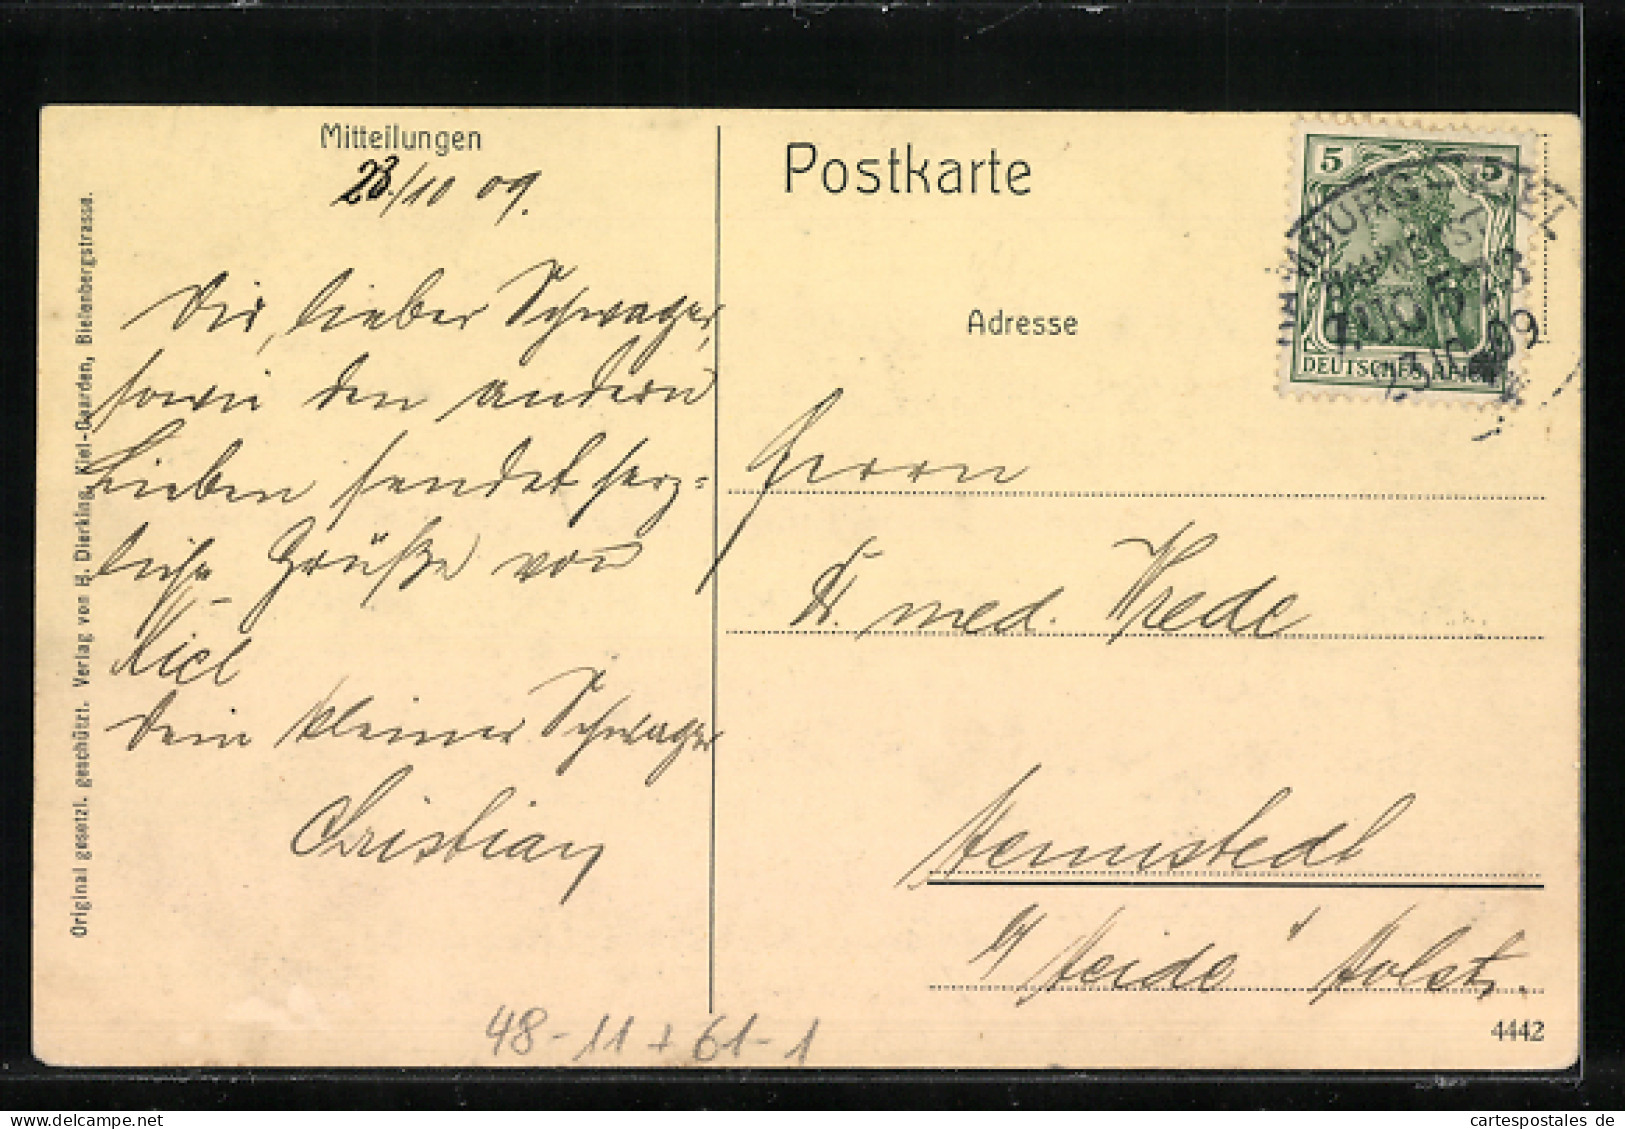 Mitteilungen
23./10 09.
Dir, lieber Schwager,
sowie den andern
Lieben sendet herz=
liche Grüße von
Kiel
Dein kleiner Schwager
Christian
Original gesetzl. geschützt. Verlag von H. Dierking, Kiel-Gaarden, Bielenbergstrasse.
Postkarte
5 5
DEUTSCHES REICH
HAMBURG
BAHNPOST
23 10 09
Adresse
Herrn
Dr. med. Wrede
Hennstedt
b/ Heide i/ Holst.
4442
48-11+61-1
cartespostales de